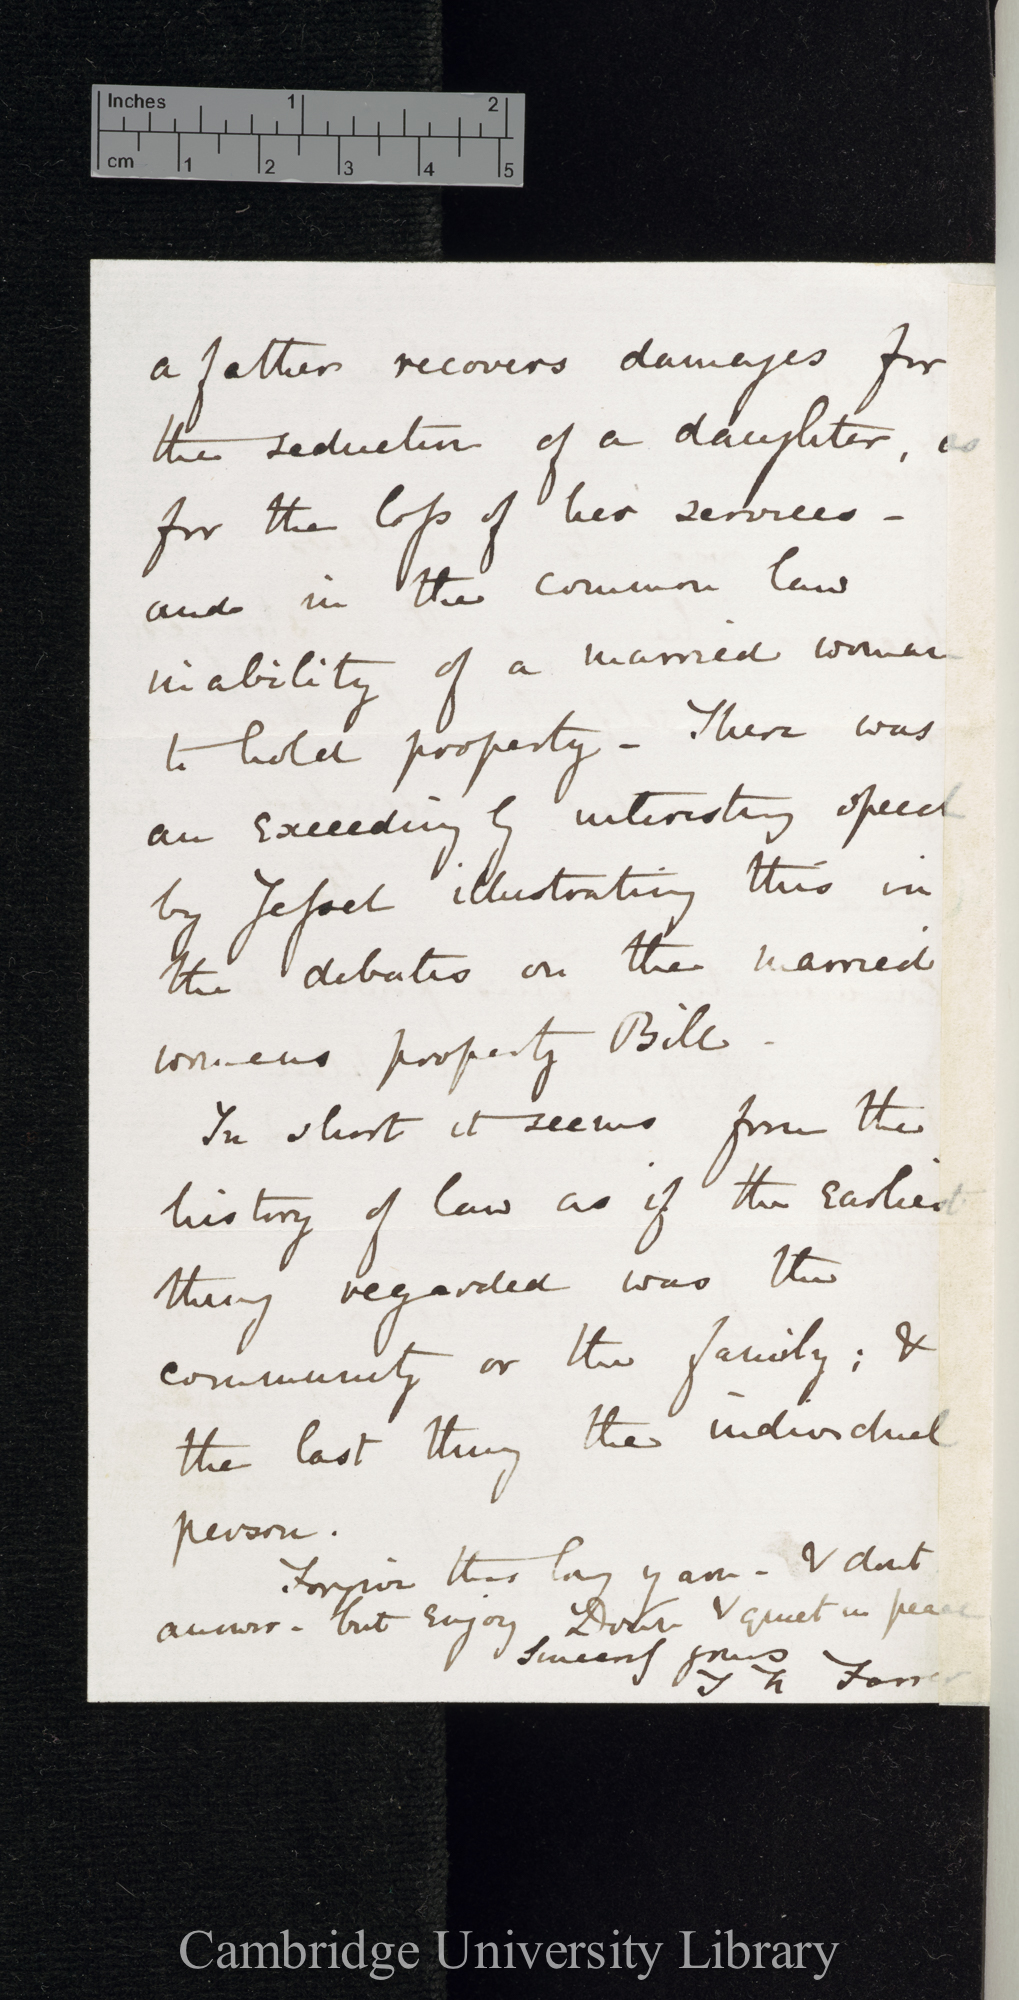 Inches 1 2
cm 1 2 3 4 5
a father recovers damages for
the seduction of a daughter, as
for the loss of her services -
and in the common law
inability of a married woman
to hold property - There was
an exceedingly interesting speech
by Jessel illustrating this in
the debates on the married
womens property Bill -
In short it seems from the
history of law as if the earliest
thing regarded was the
community or the family; &
the last thing the individual
person.
Forgive this long yarn - & dont
answer - but enjoy Down & quiet in peace
Sincerely yours
T H Farrer
Cambridge University Library